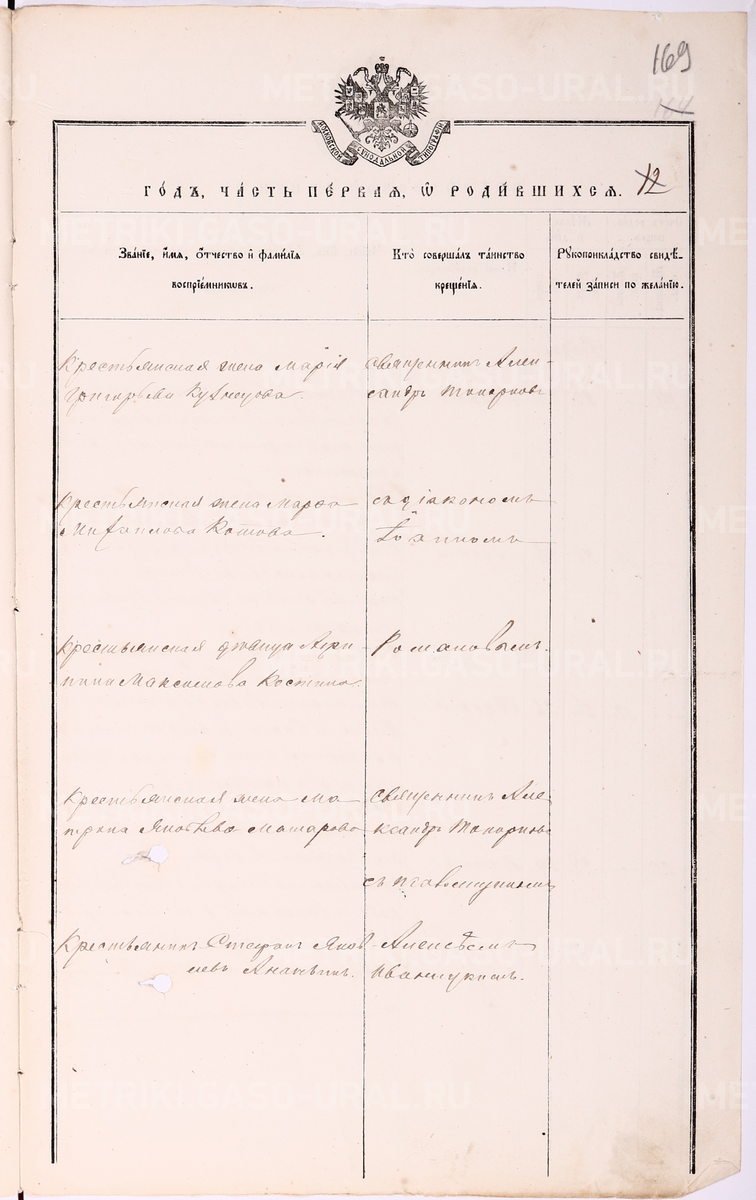 169
МОСКОВСКОЙ СѴНОДАЛЬНОЙ ТИПОГРАФІИ
ГО́ДЪ, ЧА́СТЬ ПЕ́РВАѦ, Ѽ РОДИ́ВШИХСѦ. 12
Зва́нїе, и҆́мѧ, ѻ҆́тчество и҆ фами́лїѧ воспрїе́мникѡвъ.
Кто̀ соверша́лъ та́инство креще́нїѧ.
Рꙋкоприкла́дство свидѣ́телей за́писи по жела́нїю.
Крестьянская жена Марія
Григорьева Кузнецова.
Священникъ Алек-
сандръ Топорковъ
Крестьянская жена Марѳа
Котова.
съ діакономъ
Іоанномъ
Крестьянская дѣвица Агри-
пина Максимова Костина.
Романовымъ.
Крестьянская жена Ма-
трона Яковлева Макарова
Священникъ Але-
ксандръ Топорковъ
съ псаломщикомъ
Крестьянинъ Стефанъ Яков-
левъ Ананьинъ.
Алексѣемъ
METRIKI.GASO-URAL.RU